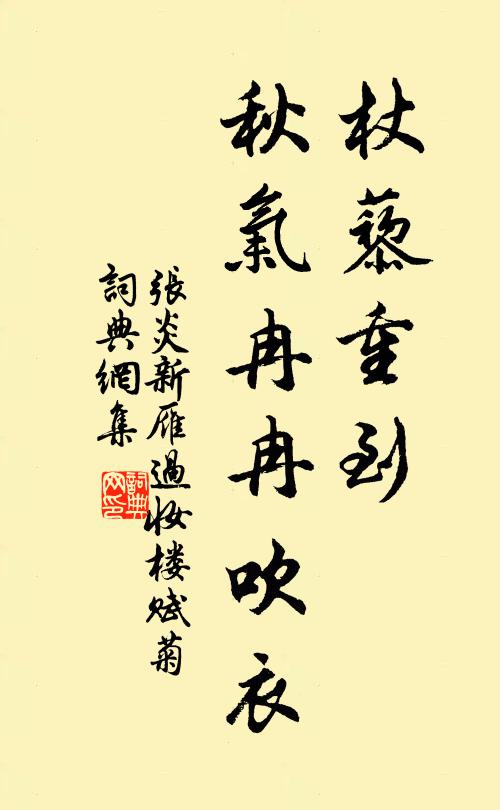 杖藜重到
秋氣冉冉吹衣
張炎新雁過妝楼赋菊
詞典網集
詞典网印